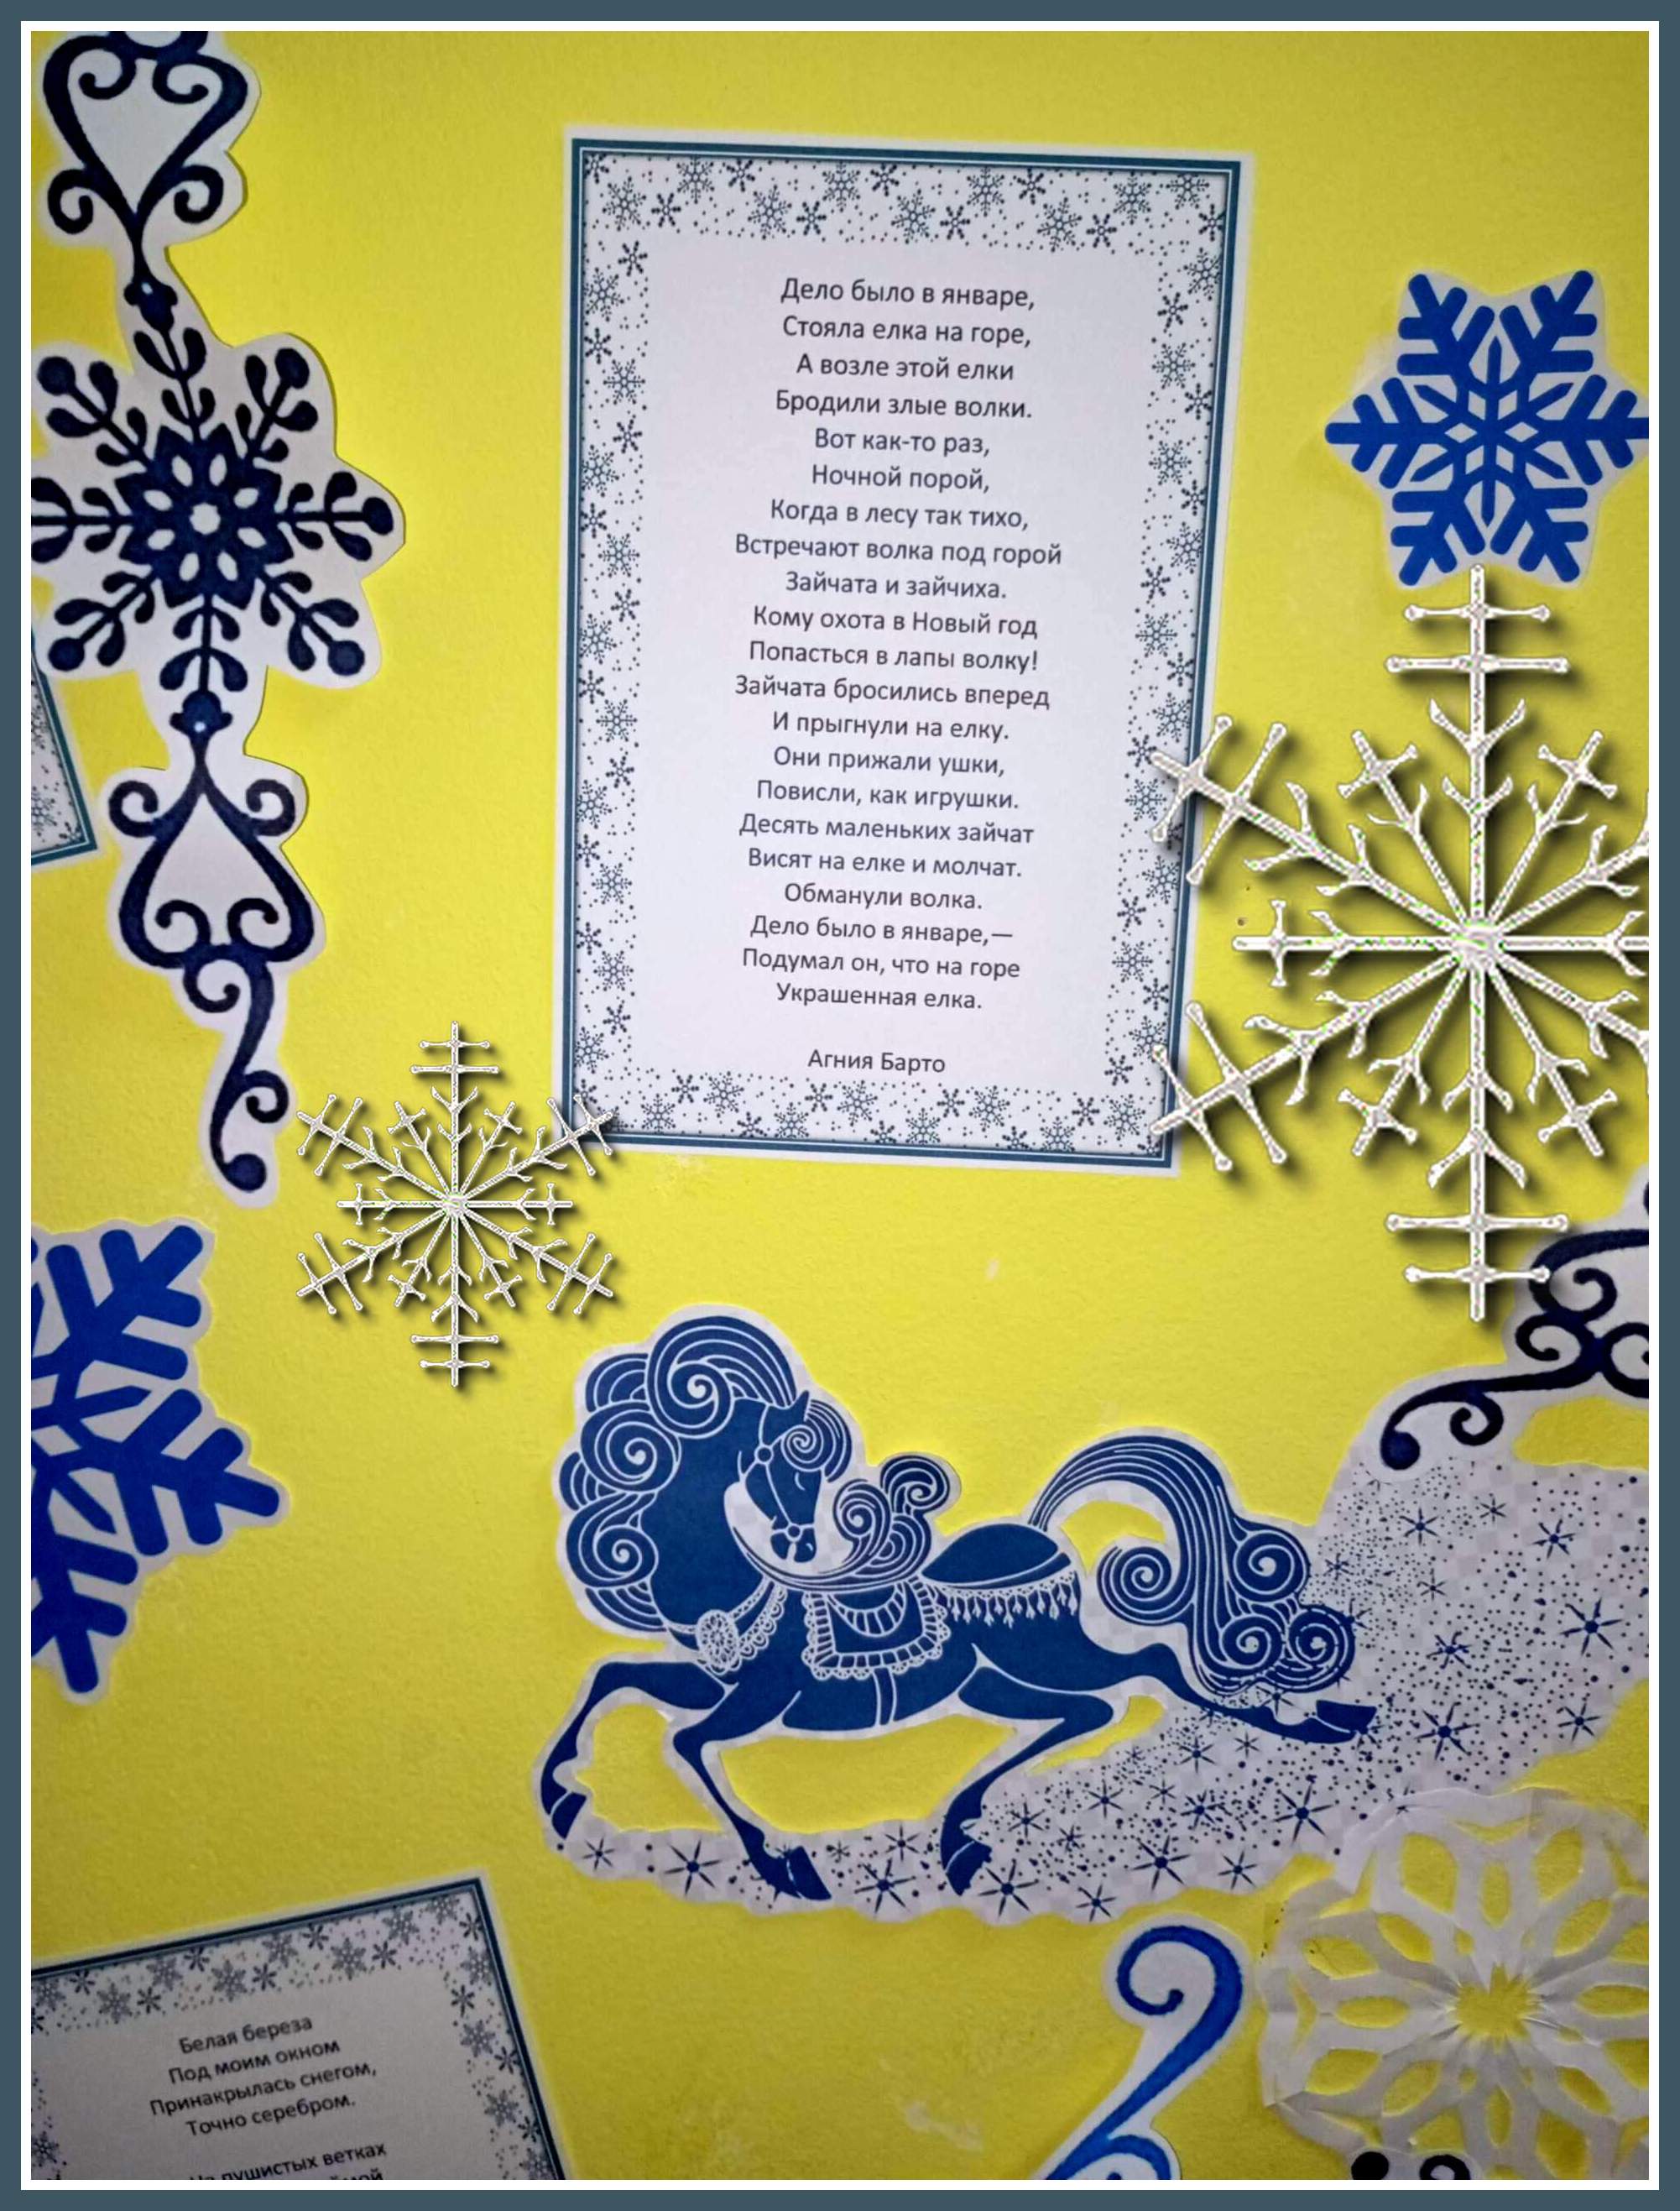 Дело было в январе,
Стояла елка на горе,
А возле этой елки
Бродили злые волки.
Вот как-то раз,
Ночной порой,
Когда в лесу так тихо,
Встречают волка под горой
Зайчата и зайчиха.
Кому охота в Новый год
Попасться в лапы волку!
Зайчата бросились вперед
И прыгнули на елку.
Они прижали ушки,
Повисли, как игрушки.
Десять маленьких зайчат
Висят на елке и молчат.
Обманули волка.
Дело было в январе,—
Подумал он, что на горе
Украшенная елка.
Агния Барто
Белая береза
Под моим окном
Принакрылась снегом,
Точно серебром.
пушистых ветках